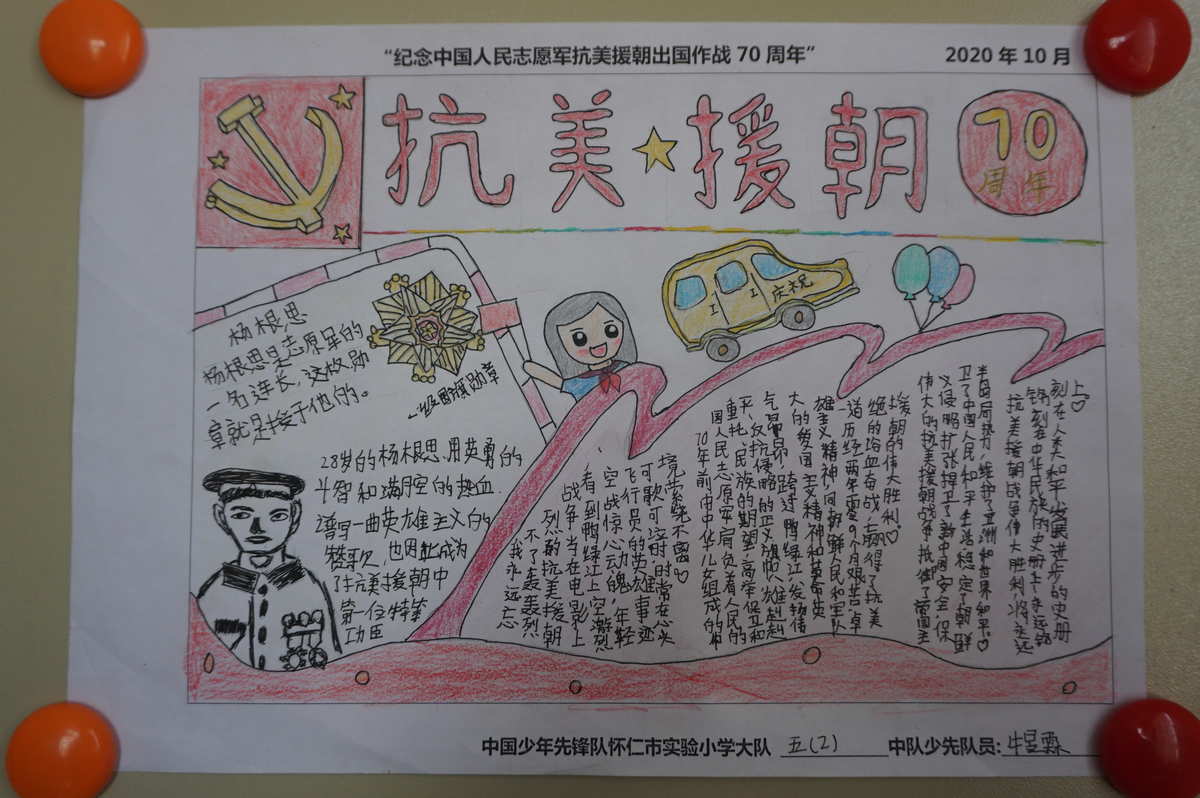 “纪念中国人民志愿军抗美援朝出国作战70周年”
2020年10月
抗美援朝
70
周年
杨根思
杨根思是志愿军的
一名连长,这枚勋
章就是授于他的。
一级国旗勋章
庆祝
28岁的杨根思.用英勇的
斗智和满腔的热血
谱写一曲英雄主义的
赞歌,也因此成为
了抗美援朝中
第一位特等
功臣
我永远忘
不了轰轰烈
烈的抗美援朝
战争当在电影上
看到鸭绿江上空激烈
空战惊心动魄,年轻
飞行员的英雄事迹
可歌可泣时时常在心头
萦绕不密♡
70年前由中华儿女组成的中
国人民志愿军肩负着人民的
重托、民族的期望,高举保卫和
平、反抗侵略的正义旗帜,雄赳赳
气昂昂,跨过鸭绿江,发扬伟
大的爱国主义精神和革命英
雄主义精神,同朝鲜人民和军队
一道历经两年零9个月艰苦卓
绝的浴血奋战,赢得了抗美
援朝的伟大胜利。♡
伟大的抗美援朝战争,抵御了帝国主
义侵略扩张捍卫了新中国安全,保
卫了中国人民和平生活,稳定了朝鲜
半岛局势,维护了亚洲和世界和平♡
抗美援朝战争伟大胜利,将永远
铭刻在中华民族的史册上!永远铭
刻在人类和平、发展进步的史册
上♡
中国少年先锋队怀仁市实验小学大队 五(2) 中队少先队员:牛昱霖